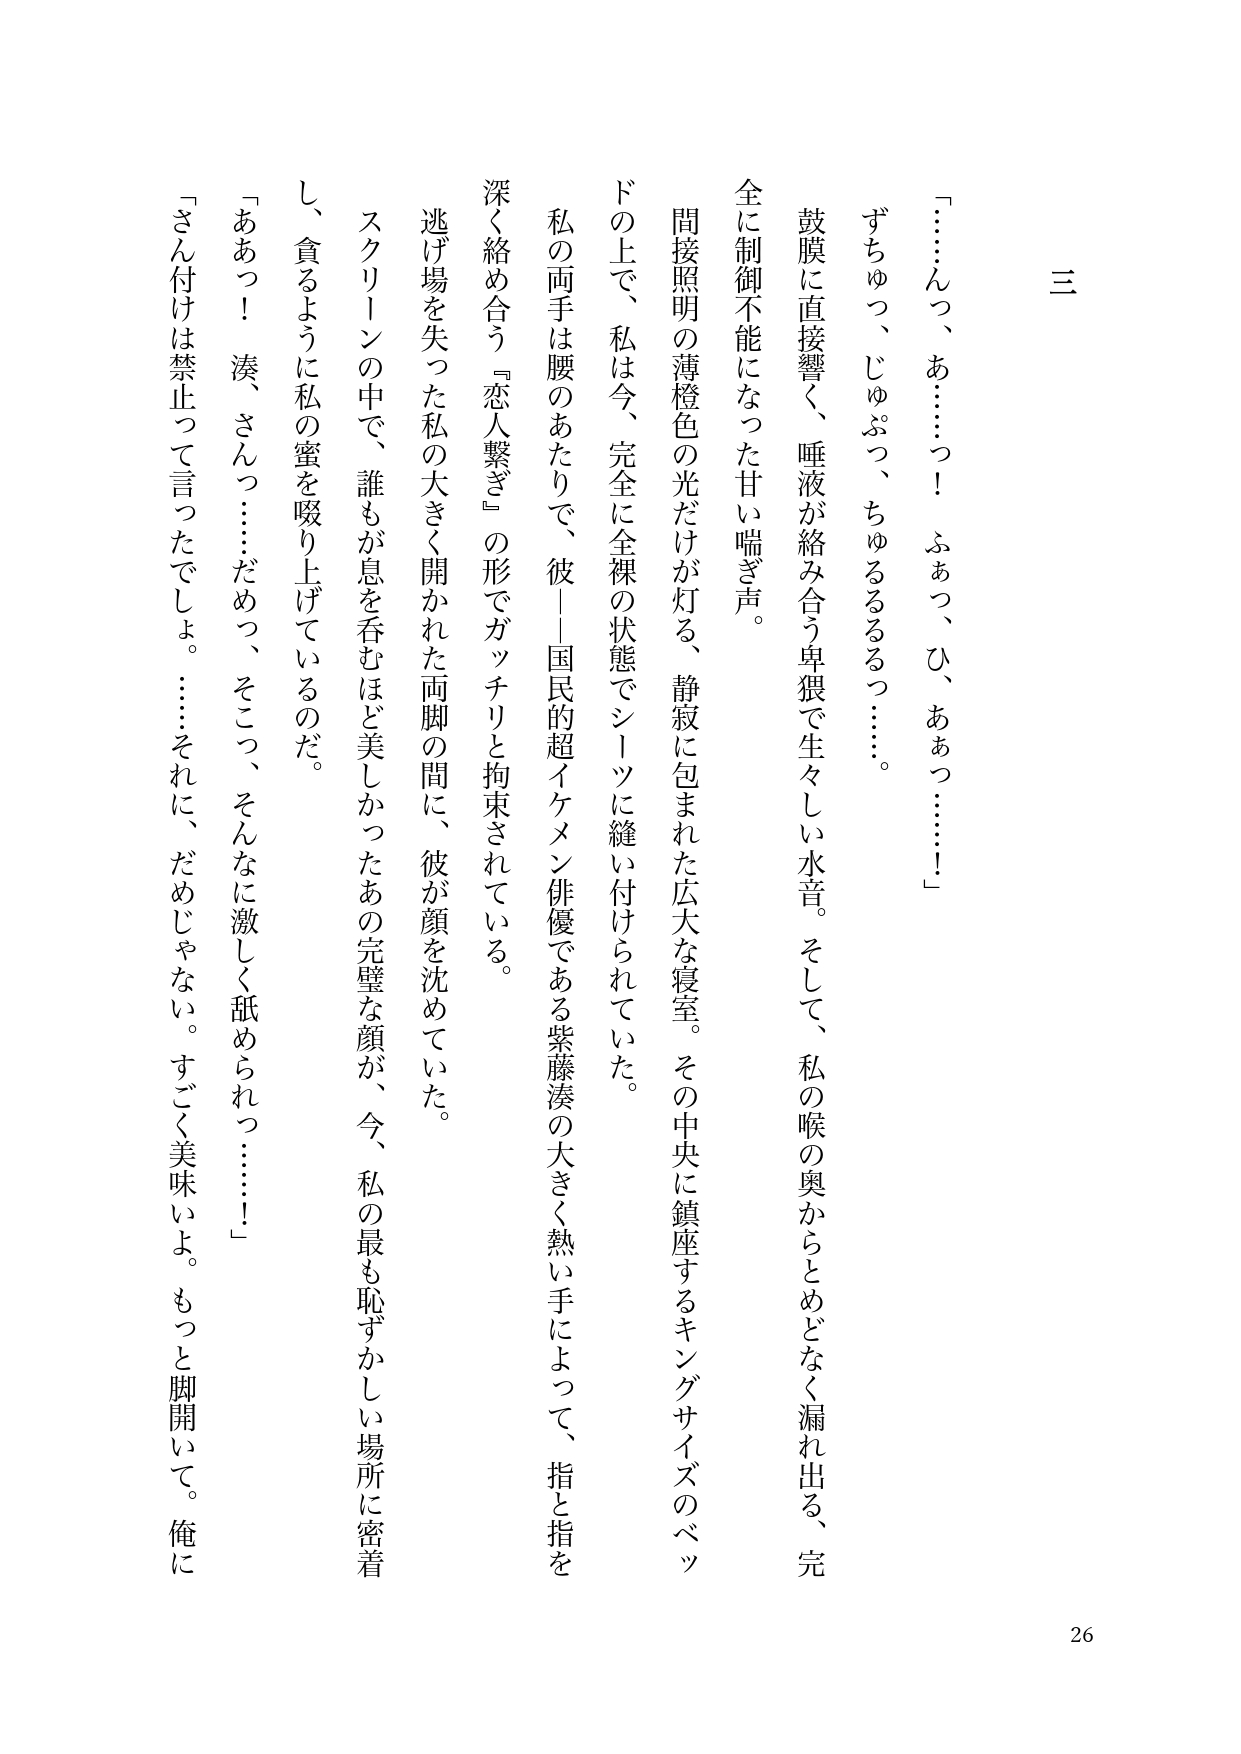 三
「……んっ、あ……っ！　ふぁっ、ひ、あぁっ……！」
ずちゅっ、じゅぷっ、ちゅるるるるっ……。
鼓膜に直接響く、唾液が絡み合う卑猥で生々しい水音。そして、私の喉の奥からとめどなく漏れ出る、完
全に制御不能になった甘い喘ぎ声。
間接照明の薄橙色の光だけが灯る、静寂に包まれた広大な寝室。その中央に鎮座するキングサイズのベッ
ドの上で、私は今、完全に全裸の状態でシーツに縫い付けられていた。
私の両手は腰のあたりで、彼――国民的超イケメン俳優である紫藤湊の大きく熱い手によって、指と指を
深く絡め合う『恋人繋ぎ』の形でガッチリと拘束されている。
逃げ場を失った私の大きく開かれた両脚の間に、彼が顔を沈めていた。
スクリーンの中で、誰もが息を呑むほど美しかったあの完璧な顔が、今、私の最も恥ずかしい場所に密着
し、貪るように私の蜜を啜り上げているのだ。
「ああっ！　湊、さんっ……だめっ、そこっ、そんなに激しく舐められっ……！」
「さん付けは禁止って言ったでしょ。……それに、だめじゃない。すごく美味いよ。もっと脚開いて。俺に
26